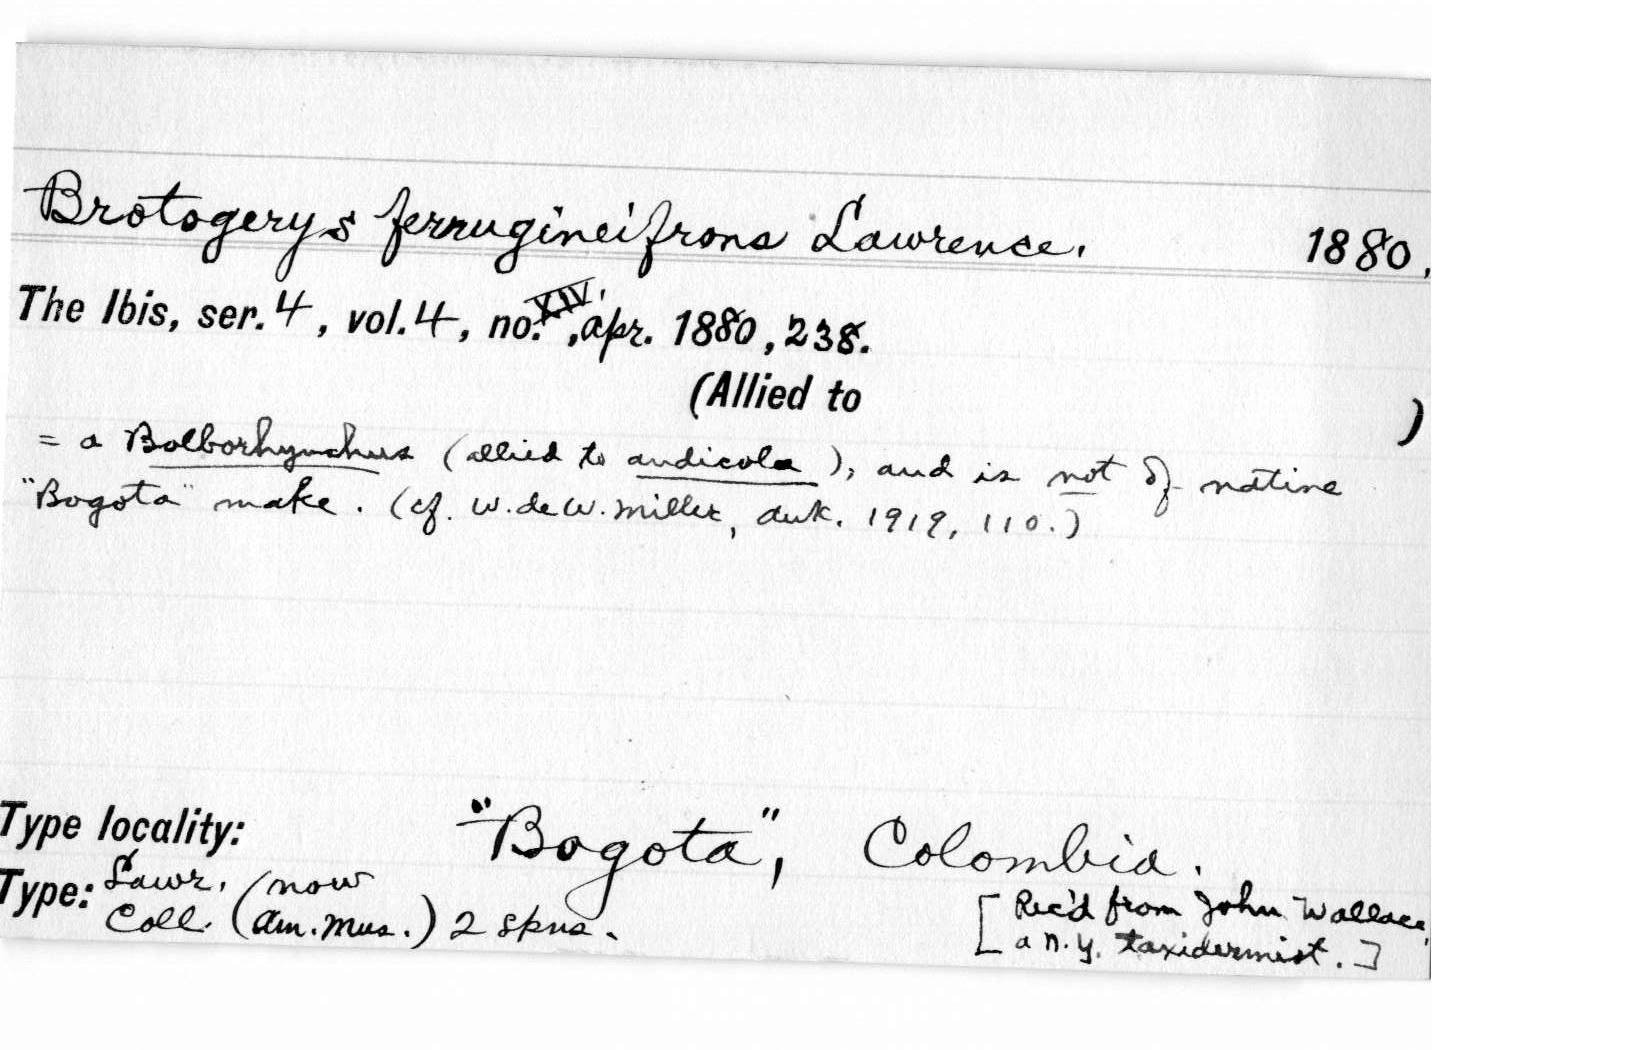 Brotogerys ferrugineifrons Lawrence. 1880.
The Ibis, ser. 4, vol. 4, no. XIV., Apr. 1880, 238.
(Allied to )
= a Bolborhynchus (allied to andicola), and is not of native
"Bogota" make. (cf. W. de W. Miller, Auk. 1919, 110.)
Type locality: "Bogota", Colombia.
Type: Lawr. Coll. (now Am. Mus.) 2 spns.
[Rec'd from John Wallace,
a N.Y. taxidermist.]